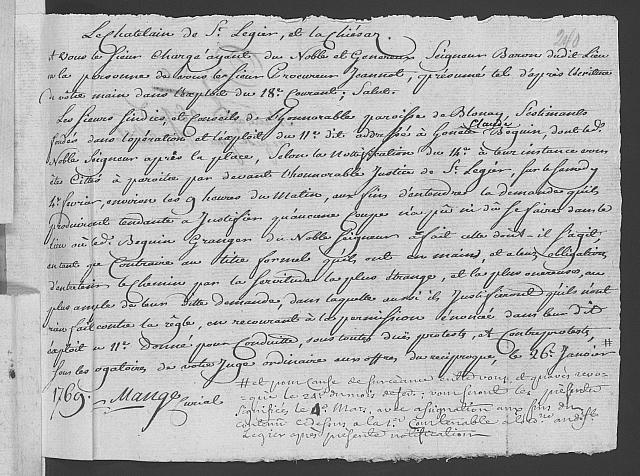 Le Chatelain de St. Legier, et la Chiésaz
A Vous le sieur Chargé ayant du Noble et Genereux Seigneur Baron dudit Lieu
en la personne de vous le sieur Procureur Jeannot, présumé tel d'après l'écriture
de vôtre main dans l'exploit du 18e. Courant; Salut.
Les sieurs sindics, et Conseils de L'honnorable paroisse de Blonay, Sestimants
fondés dans l'opération et l'exploit du 11e. dit addressés à Honête Claude Boquin, dont led.
Noble Seigneur après la place, Selon la Nottification du 14e. à leur instance vous
êtes Cittés à paroitre par devant L'honorable Justice de St. Legier, sur le samedy
4e. fevrier, environ les 9 heures du Matin, aux fins d'entendre la demande qu'ils
produiront tendante à Justifier qu'aucune Coupe n'a pû ni dû se faire dans le
lieu ou led. Boquin Granger du Noble Seigneur a fait celle dont il s'agit
entant que Contraire au titre formel qu'ils ont en mains, et à leur obligation
d'entretenir le chemin par la servitude la plus étrange, et la plus onereuse, au
plus ample de leur ditte demande, dans laquelle aussi ils Justifieront qu'ils n'ont
rien fait contre la règle, en recourant à la permission énoncée dans leur dit
exploit du 11e. Donné pour Conduitte, sous toutes dües protests, et Contreprotests
sous les ogatoires de votre Juge ordinaire aux offres du réciproque, le 26e. Janvier #
1769. Mange Curial
# et pour cause de surséance entre vous, et
que le 24e du mois de
signifiés le 4e. Mars, avec assignation aux fins du
contenu cidessus à la
Legier après présente notification